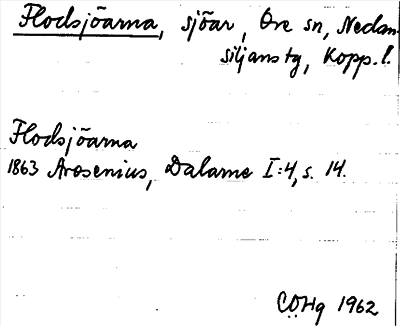 Flodsjöarna, sjöar, Ore sn, Nedan-
siljans tg, Kopp. l.
Flodsjöarna
1863 Arosenius, Dalarne I:4, s. 14.
CÖHg 1962